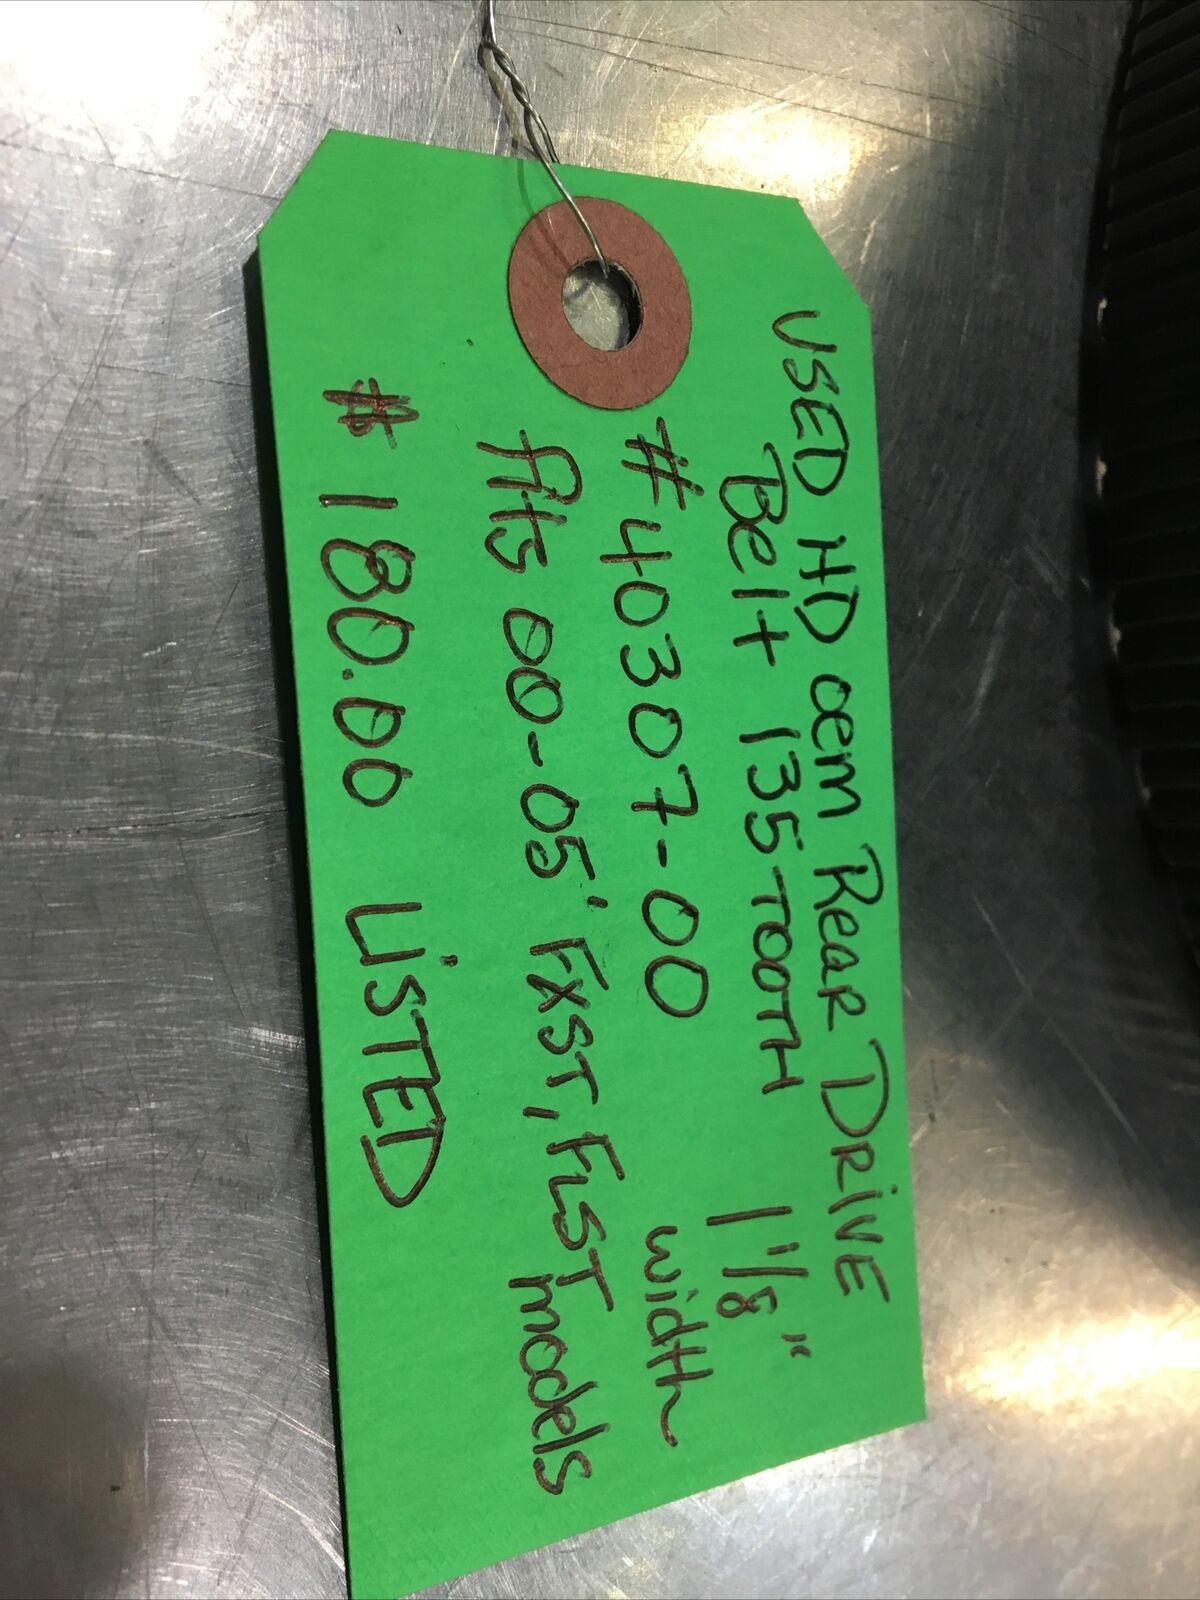 USED HD OEM Rear DRIVE
Belt 135-TOOTH 1 1/8"
#40307-00 width
fits 00-05' FXST, FLST models
$ 180.00 LISTED